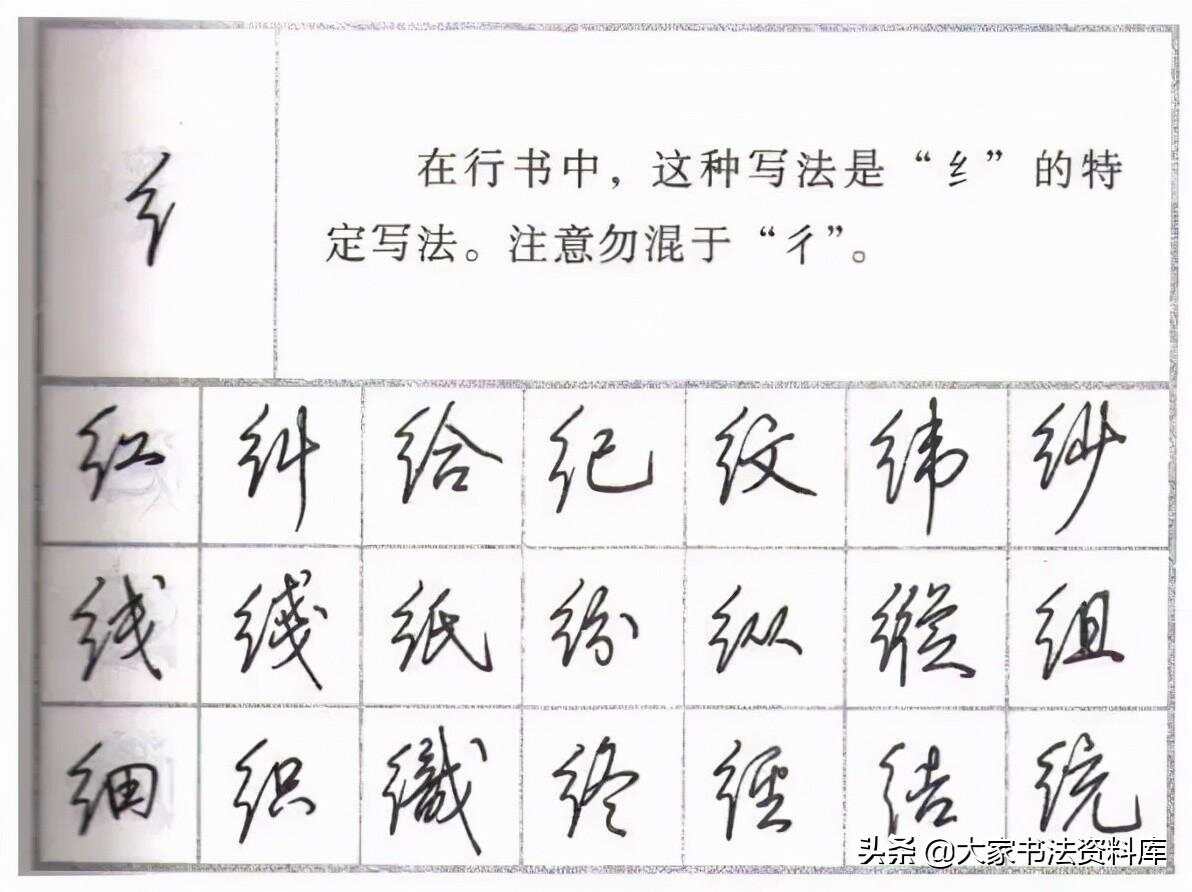 纟
在行书中,这种写法是“纟”的特
定写法。注意勿混于“彳”。
红 纠 给 纪 纹 纬 纱
线 綫 纸 纷 纵 縱 组
细 织 織 终 經 结 统
头条 @大家书法资料库